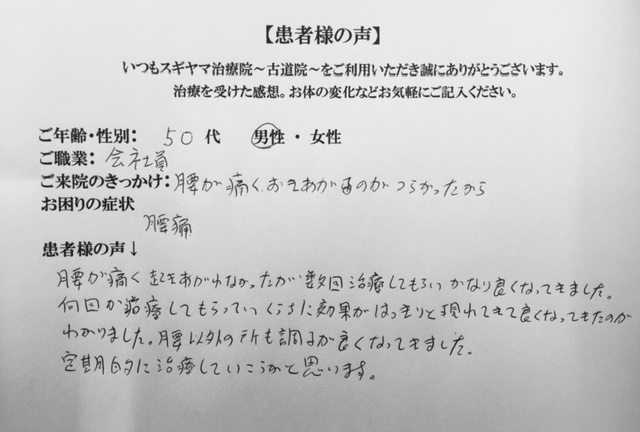 【患者様の声】
いつもスギヤマ治療院～古道院～をご利用いただき誠にありがとうございます。
治療を受けた感想。お体の変化などお気軽にご記入ください。
ご年齢・性別： 50代 男性・女性
ご職業： 会社員
ご来院のきっかけ： 腰が痛く おきあがるのがつらかったから
お困りの症状
腰痛
患者様の声↓
腰が痛く起きあがれなかったが数回治療してもらいかなり良くなってきました。
何回か治療してもらっていくうちに効果がはっきりと現れてきて良くなってきたのが
わかりました。腰以外の所も調子が良くなってきました。
定期的に治療していこうかと思います。